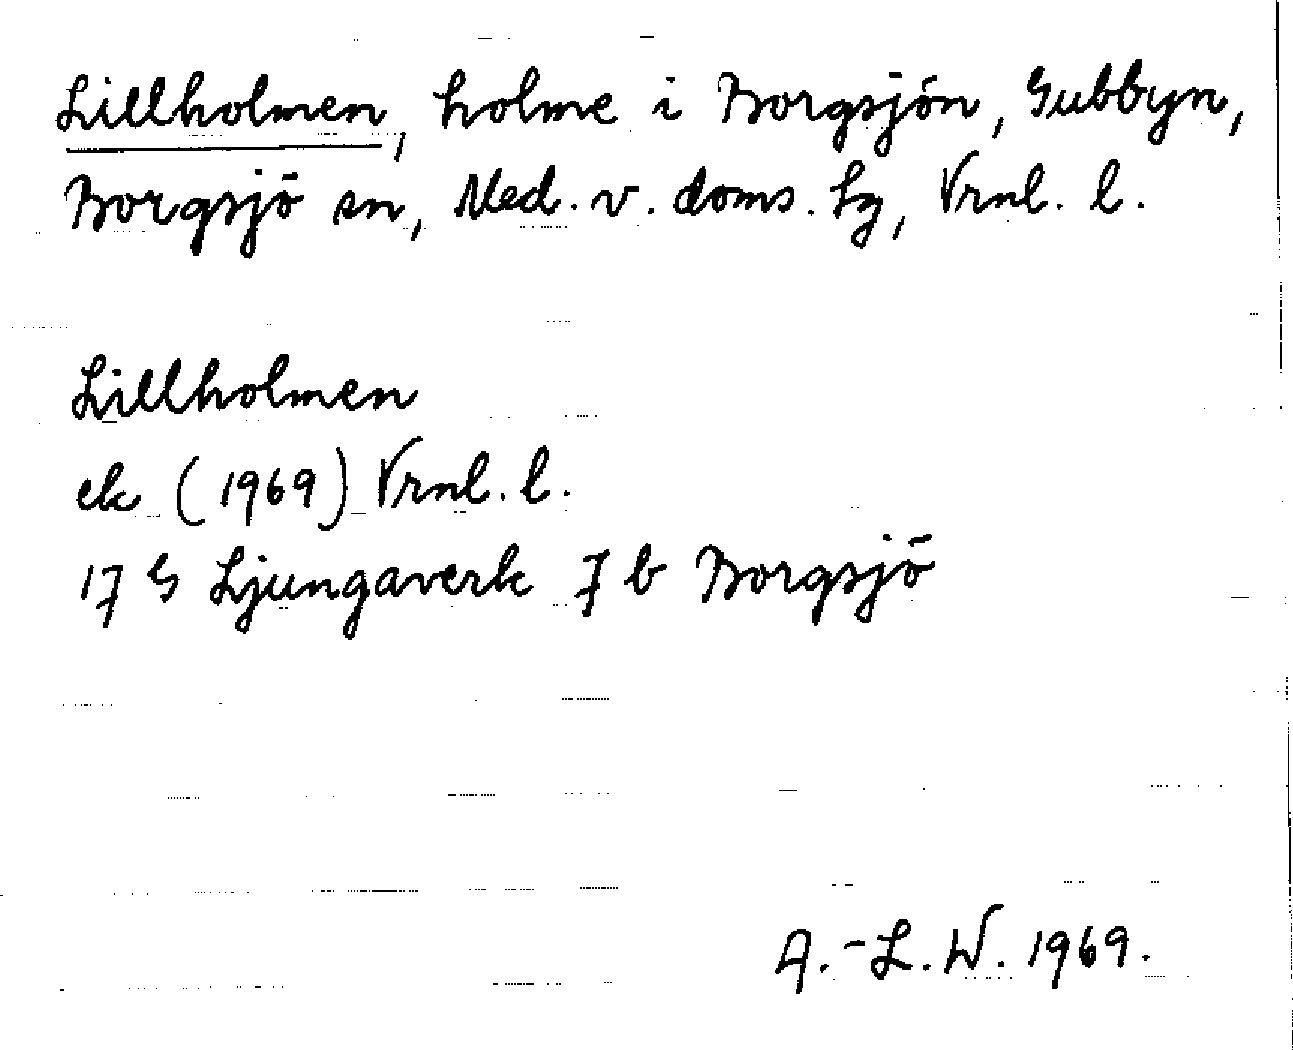 Lillholmen, holme i Borgsjön, Gubbyn,
Borgsjö sn, Med. v. doms. hg, Vrnl. l.
Lillholmen
ek (1969) Vrnl. l.
17 G Ljungaverk 7 b Borgsjö
A.-L. W. 1969.